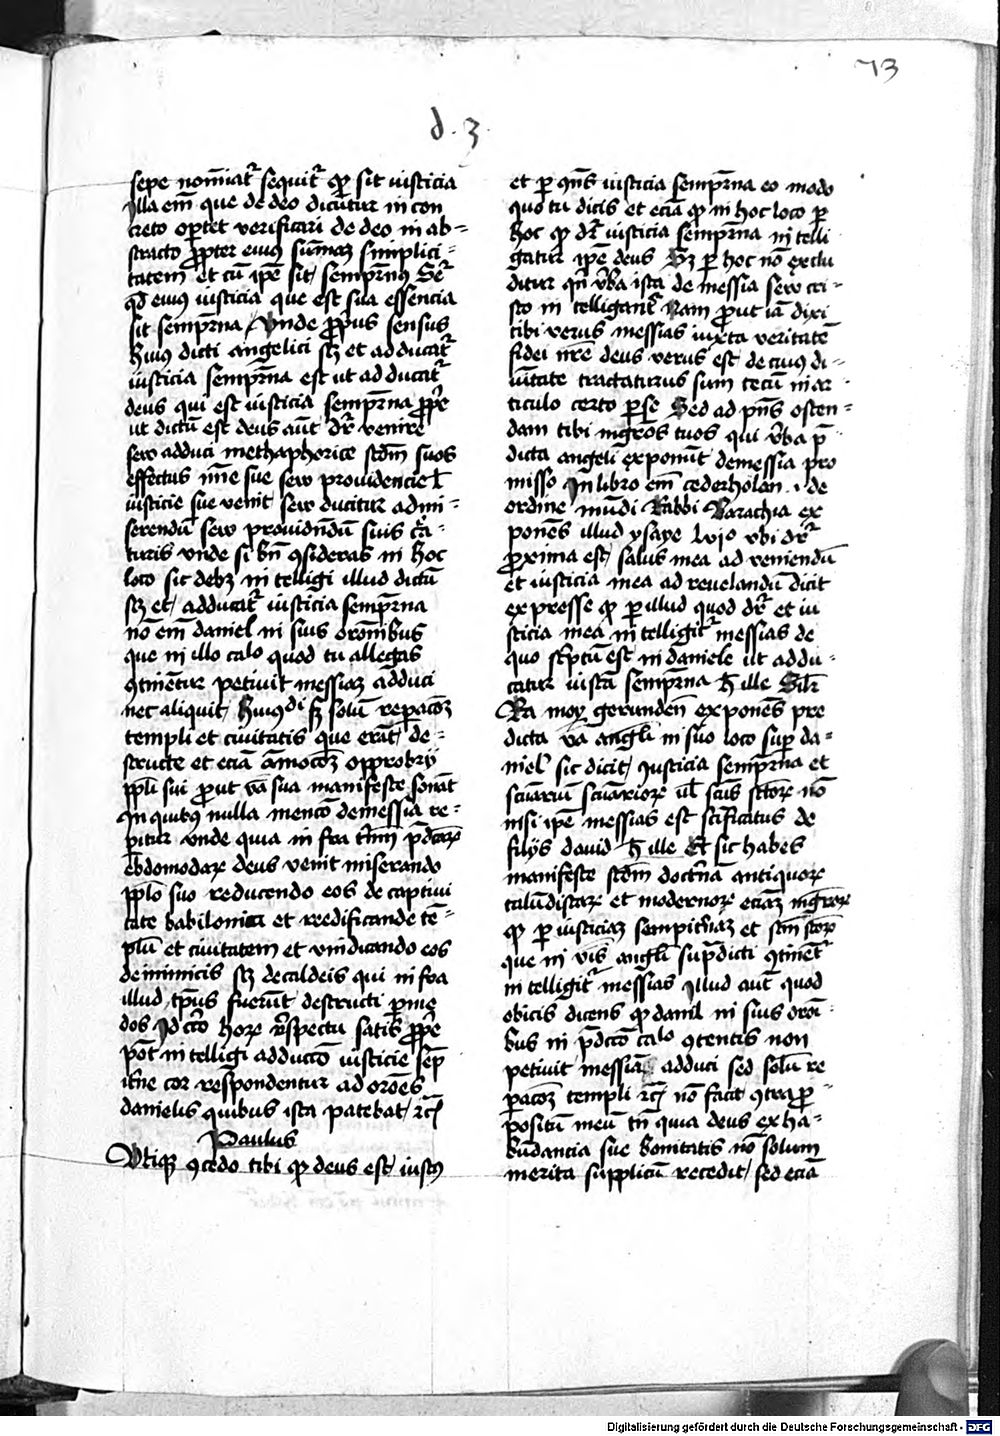 73
d. 3.
sepe nom̄iatr̄ sequitr̄ ꝙ sit iusticia
Illa em̄ que de deo dicūtur in con
creto oportet verificari de deo in ab-
stracto ꝓpter eius sum̄aꝫ simplici-
tatem et cū ip̄e sit sempr̄nꝰ Seqr̄
qd̄ eius iusticia que est sua essencia
sit sempr̄na / Unde ꝓprius sensus
huiꝰ dicti angelici scꝫ et adducatr̄
iusticia sempr̄na est ut adducatr̄
deus qui est iusticia sempr̄na ꝓpe
ut dictū est deus aūt dr̄ venire
sew adduci methaphorice scdm̄ suos
effectus sue sew providencie l̄
iusticie sue venit sew ducitur ad mi-
serendū sew providn̄dū suis cr̄a-
turis vnde si bn̄ ꝯsideras in hoc
loco sic debꝫ intelligi illud dictū
scꝫ et adducatr̄ iusticia sempr̄na
nō em̄ daniel in suis orōnibus
que in illo calo quod tu allegas
ꝯtinētur petiuit messiaꝫ adduci
nec aliquit huiꝰdi sꝫ solū reparacōꝫ
templi et ciuitatis que erāt de-
structe et eciā amocōꝫ opprobrij
ppli sui ꝓut v̄a sua manifeste sonāt
In quibꝰ nulla mencō de messia re-
pitur vnde quia in fra pdcāꝝ
ebdomodaꝝ deus venit miserando
pplo suo reducendo eos de captiui
tate babilonica et reedificande tē-
plū et ciuitatem et vindicando eos
de inimicis scꝫ de caldeis qui in fra
illud tp̄us fuerūt destructi
dos Id cc̄o horꝝ respectu satis ꝓpe
pōt intelligi adduccō iusticie sēp
itn̄e cor respondentur ad orōes
danielis quibus ista patebāt rc̄
Paulus
Utiqꝫ ꝯcedo tibi ꝙ deus est iustꝰ
et per qn̄s iusticia sempr̄na eo modo
quo tu dicis et eciā ꝙ in hoc loco per
hoc ꝙ dr̄ iusticia sempr̄na intelli
gatur ip̄e deus Sꝫ per hoc nō exclu
ditur qn̄ v̄ba ista de messia sew cri-
sto intelligant̄ Nam ꝓut iā dixi
tibi verus messias iuxta veritatē
fidei nr̄e deus verus est de cuius di-
uitate tractaturus sum tecū in ar-
ticulo certo per se Sed ad pn̄s osten-
dam tibi mgr̄os tuos qui v̄ba p̄-
dicta angeli exponūt de messia pro
misso In libro em̄ cederholan .i. de
ordine mūdi Rabbi Barachia ex
ponēs illud ysaye lvjo vbi dr̄
ꝓxima est salus mea ad veniendū
et iusticia mea ad reuelandū dicit
expresse ꝙ per illud quod dr̄ et iu
sticia mea intelligitr̄ messias de
quo scptū est in daniele ut addu-
catur iusticia sempr̄na h̄ ille Silr̄
Ra moyses gerunden̄ exponēs pre
dicta v̄a angeli in suo loco super da-
niel sic dicit Iusticia sempr̄na et
scūariū scūarioꝝ ul̄ scūs sctoꝝ nō
nisi ip̄e messias est scificatus de
filijs dauid h̄ ille Et sic habes
manifeste scdm̄ doctr̄na antiquoꝝ
talmudistaꝝ et modernoꝝ eciaꝫ mgr̄oꝝ
ꝙ per iusticiaꝫ sempitn̄aꝫ et scm̄ scoꝝ
que in v̄is angeli supradicti ꝯtinētr̄
intelligitr̄ messias Illud aūt quod
obicis dicens ꝙ daniel in suis orōi-
bus in p̄dcō calo ꝯtentis non
petiuit messiā adduci sed solū re
paracōꝫ templi rc̄ nō facit ꝯtra pro-
positū meū tn̄ quia deus ex ha-
bundancia sue bonitatis nō solum
merita supplicū excedit sed eciā
Digitalisierung gefördert durch die Deutsche Forschungsgemeinschaft - DFG